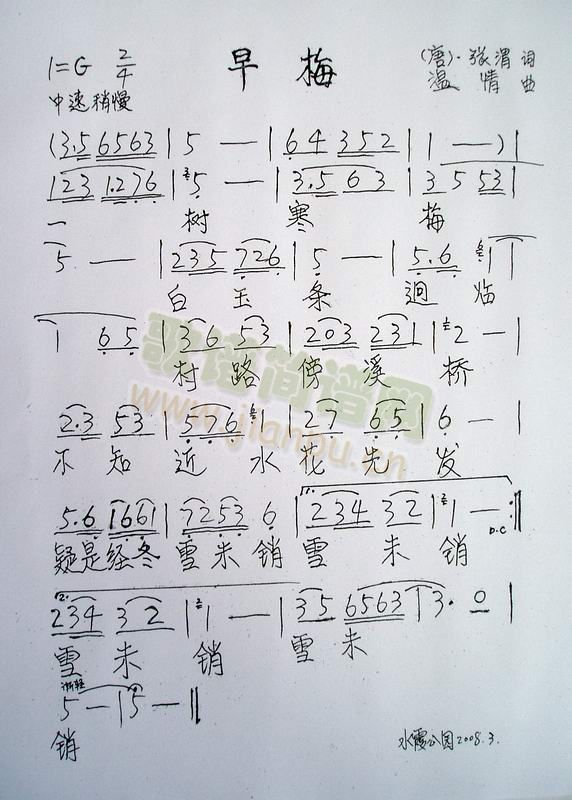 早 梅
1=G 2/4
(唐)·张渭 词
温 情 曲
中速稍慢
(3.5 6563 | 5 — | 64 352 | 1 —) |
123 1.276 | 5 — | 3.5 63 | 35 53 |
一 树 寒 梅
5 — — | 235 726 | 5 — | 5.6 1 |
白 玉 条 迥 临
1 65 | 36 53 | 203 231 | 2 — |
村 路 傍 溪 桥
2.3 53 | 576 1 | 27 65 | 6 — |
不 知 近 水 花 先 发
5.6 1661 | 7253 6 | 234 32 | 1 — :||
D.C
疑是经冬 雪未销 雪 未 销
2.
234 32 | 1 — | 35 6563 | 3. 0 |
雪 未 销 雪 未
渐轻
5 — | 5 — ||
销
水霞公园2008.3.
歌谱简谱网
www.jianpu.cn